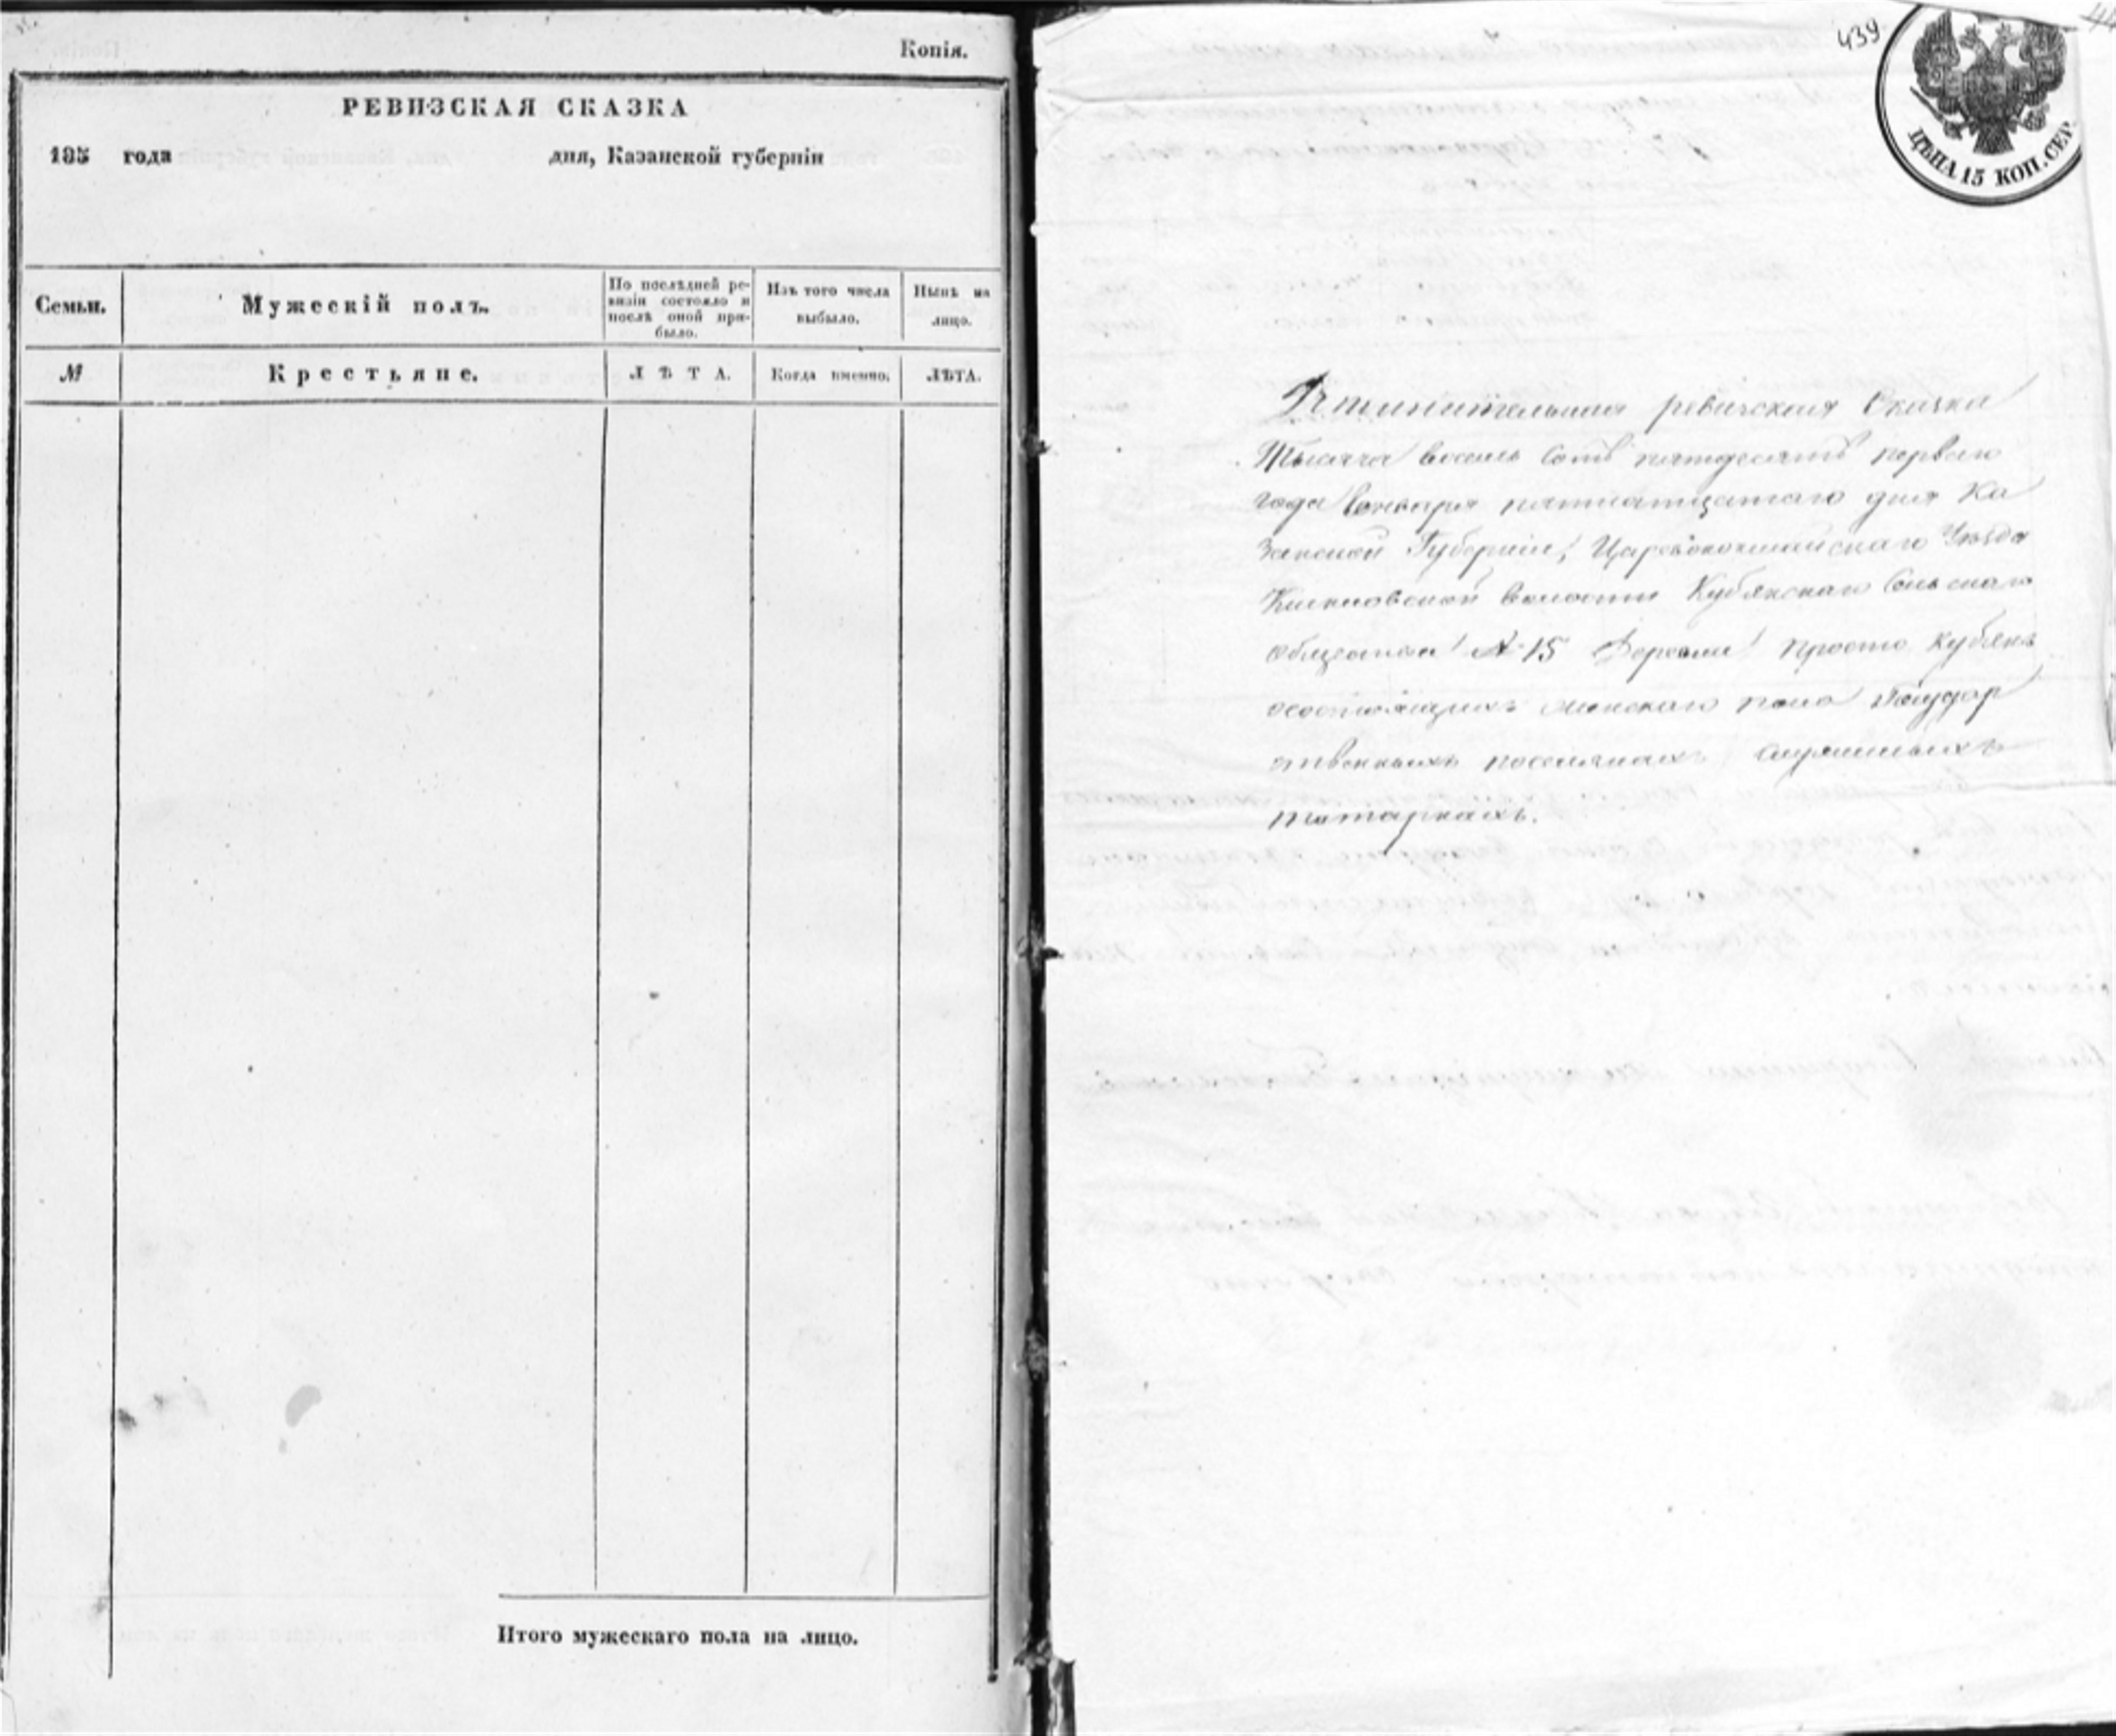 Копія.
РЕВИЗСКАЯ СКАЗКА
185 года дня, Казанской губерніи
Семьи.
Мужескій полъ.
По послѣдней ре-
визіи состояло и
послѣ оной при-
было.
Изъ того числа
выбыло.
Нынѣ на
лицо.
№
Крестьяне.
ЛѢТА.
Когда именно.
ЛѢТА.
Итого мужескаго пола на лицо.
439
ЦѢНА 15 КОП. СЕР.
ревизская Сказка
Тысяча восемь сотъ пятьдесятъ перваго
года генваря пятнатцатаго дня Ка
занской Губерніи, Царевококшайскаго Уѣзда
волости Кубянскаго Сельскаго
общества № 15 Деревни просто Кубянъ
осостоящихъ женскаго пола Государ
ственныхъ поселянахъ
татаркахъ.